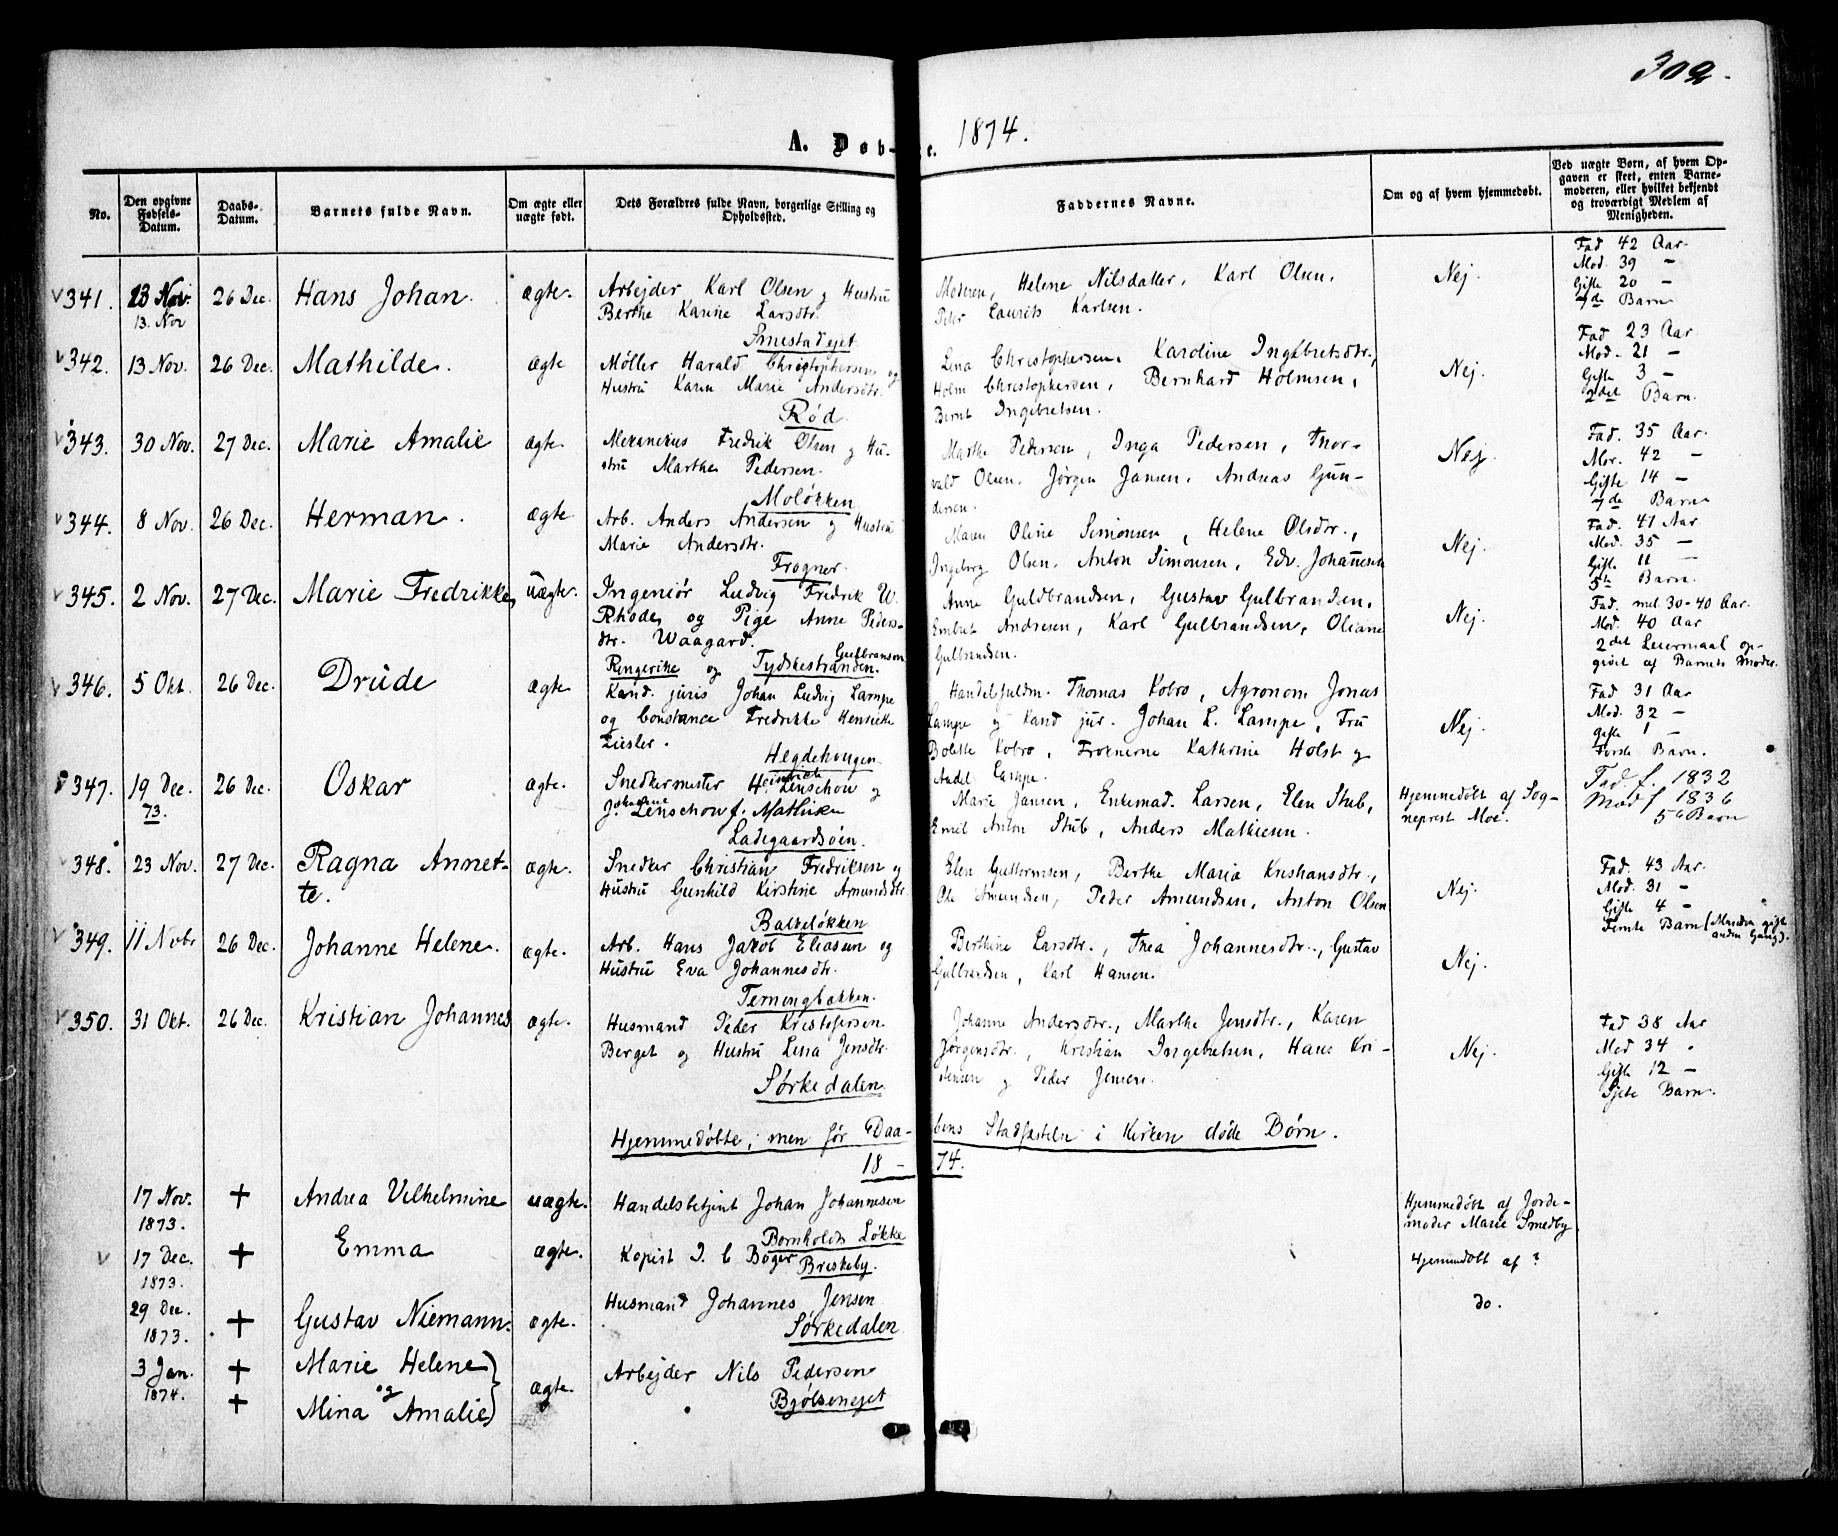 302.
A. Døb-te. 1874.
No.
Den opgivne Fødsels-Datum.
Daabs-Datum.
Barnets fulde Navn.
Om ægte eller uægte født.
Dets Forældres fulde Navn, borgerlige Stilling og Opholdssted.
Faddernes Navne.
Om og af hvem hjemmedøbt.
Ved uægte Børn, af hvem Opgaven er skeet, enten Barnemoderen, eller hvilket bekjendt og troværdigt Medlem af Menigheden.
341. 13 Nov. 26 Dec. Hans Johan. ægte. Arbejder Karl Olsen og Hustru
13. Nov Berthe Karine Larsdtr.
Smestadejet
Moderen, Helene Nilsdatter, Karl Olsen,
Peter Laurits Karlsen.
Nej
Fad 42 Aar.
Mod. 39 -
Gifte 20 -
7de Barn
342. 13 Nov. 26 Dec. Mathilde. ægte Møller Harald Christophersen og
Hustru Karen Marie Andersdtr.
Rød
Lina Christophersen, Karoline Ingebretsdtr.,
Holm Christophersen, Bernhard Holmsen,
Bernt Ingebretsen.
Nej.
Fad 23 Aar
Mod. 21 -
Gifte 3 -
2det Barn.
343. 30 Nov. 27 Dec. Marie Amalie ægte. Mekanikus Fredrik Olsen og Hu-
stru Marthe Pedersen.
Moløkken
Marthe Pedersen, Inga Pedersen, Thor-
vald Olsen, Jørgen Jansen, Andreas Gun-
dersen.
Nej
Fad. 35 Aar.
Mor. 42 -
Gifte 14 -
7de Barn
344. 8 Nov. 26 Dec. Herman. ægte. Arb. Anders Andersen og Hustru
Marie Andersdtr.
Frogner.
Maren Oline Simonsen, Helene Olsdtr.,
Ingeborg Olsen, Anton Simonsen, Edv. Johannesen
Nej.
Fad. 41 Aar
Mod. 35 -
Gifte 11 -
5te Barn.
345. 2 Nov. 27 Dec. Marie Fredrikke, uægte. Ingeniør Ludvig Fredrik W.
Rhode, og Pige Anne Peders-
dtr. Waagard. Gulbransen
Ringerike og Tydskestranden.
Anne Guldbrandsen, Gustav Gulbrandsen,
Embret Andresen, Karl Gulbrandsen, Oliane
Gulbrandsen.
Nej.
Fad. mel. 30-40 Aar.
Mod. 40 Aar
2det Leiermaal op-
givet af Barnets Moder.
346. 5 Okt. 26 Dec. Drude ægte. Kand. juris Johan Ludvig Lampe
og Constance Fredrikke Henriette
Ziesler.
Hegdehougen
Handelsfuldm. Thomas Kobro, Agronom Jonas
Lampe og Kand jur. Johan L. Lampe, Fru
Bolette Kobro, Frøknerne Kathrine Holst og
Andel Lampe.
Nej
Fad 31 Aar
Mod. 32 -
gifte 1 -
Første Barn.
347. 19 Dec. 26 Dec. Oskar ægte. Snedkermester Heinrich Linschow og
73. Johanne Linschow f. Mathisen
Ladegaardsøen.
Marie Jansen, Enkemad. Larsen, Elen Stub,
Emil Anton Stub, Anders Mathiesen.
Hjemmedøbt af Sog-
neprest Moe.
Fad f. 1832
Mod f 1836
5te Barn
348. 23 Nov. 27 Dec. Ragna Annet-
te. ægte. Snedker Christian Fredriksen og
Hustru Gunhild Kirstine Amundsdtr.
Balkeløkken
Elen Guttormsen, Berthe Maria Kristiansdtr.,
Ole Amundsen, Peder Amundsen, Anton Olsen
Nej.
Fad. 43 Aar.
Mod. 31 -
Gifte 4 -
Femte Barn (Manden gift
anden Gang).
349. 11 Nobr 26 Dec. Johanne Helene. ægte. Arb. Hans Jakob Eliasen og
Hustru Eva Johannesdtr.
Terningbakken.
Berthine Larsdtr., Thea Johannesdtr., Gustav
Gulbrandsen, Karl Hansen.
Nej.
350. 31 Okt. 26 Dec. Kristian Johannes ægte. Husmand Peder Kristofersen
Berget og Hustru Lena Jensdtr.
Sørkedalen
Johanne Andersdtr., Marthe Jensdtr., Karen
Jørgensdtr., Kristian Ingebretsen, Hans Kri-
stensen og Peder Jensen.
Nej.
Fad 38 Aar
Mod 34
Gifte 12 -
Sjete Barn.
Hjemmedøbte, men før Daa-bens Stadfæstelse i Kirken døde Børn.
18-74.
17 Nov. 1873. + Andrea Vilhelmine uægte. Handelsbetjent Johan Johannesen
Bornholds Løkke
Hjemmedøbt af Jorde-
moder Marie Smedby.
17 Dec. 1873. + Emma ægte. Kopist I. C Bøger Briskeby.
Hjemmedøbt af ?
29 Dec. 1873. + Gustav Niemann. ægte. Husmand Johannes Jensen
Sørkedalen
do.
3 Jan. 1874. + Marie Helene og
+ Mina Amalie ægte. Arbejder Nils Pedersen
Bjølsenejet